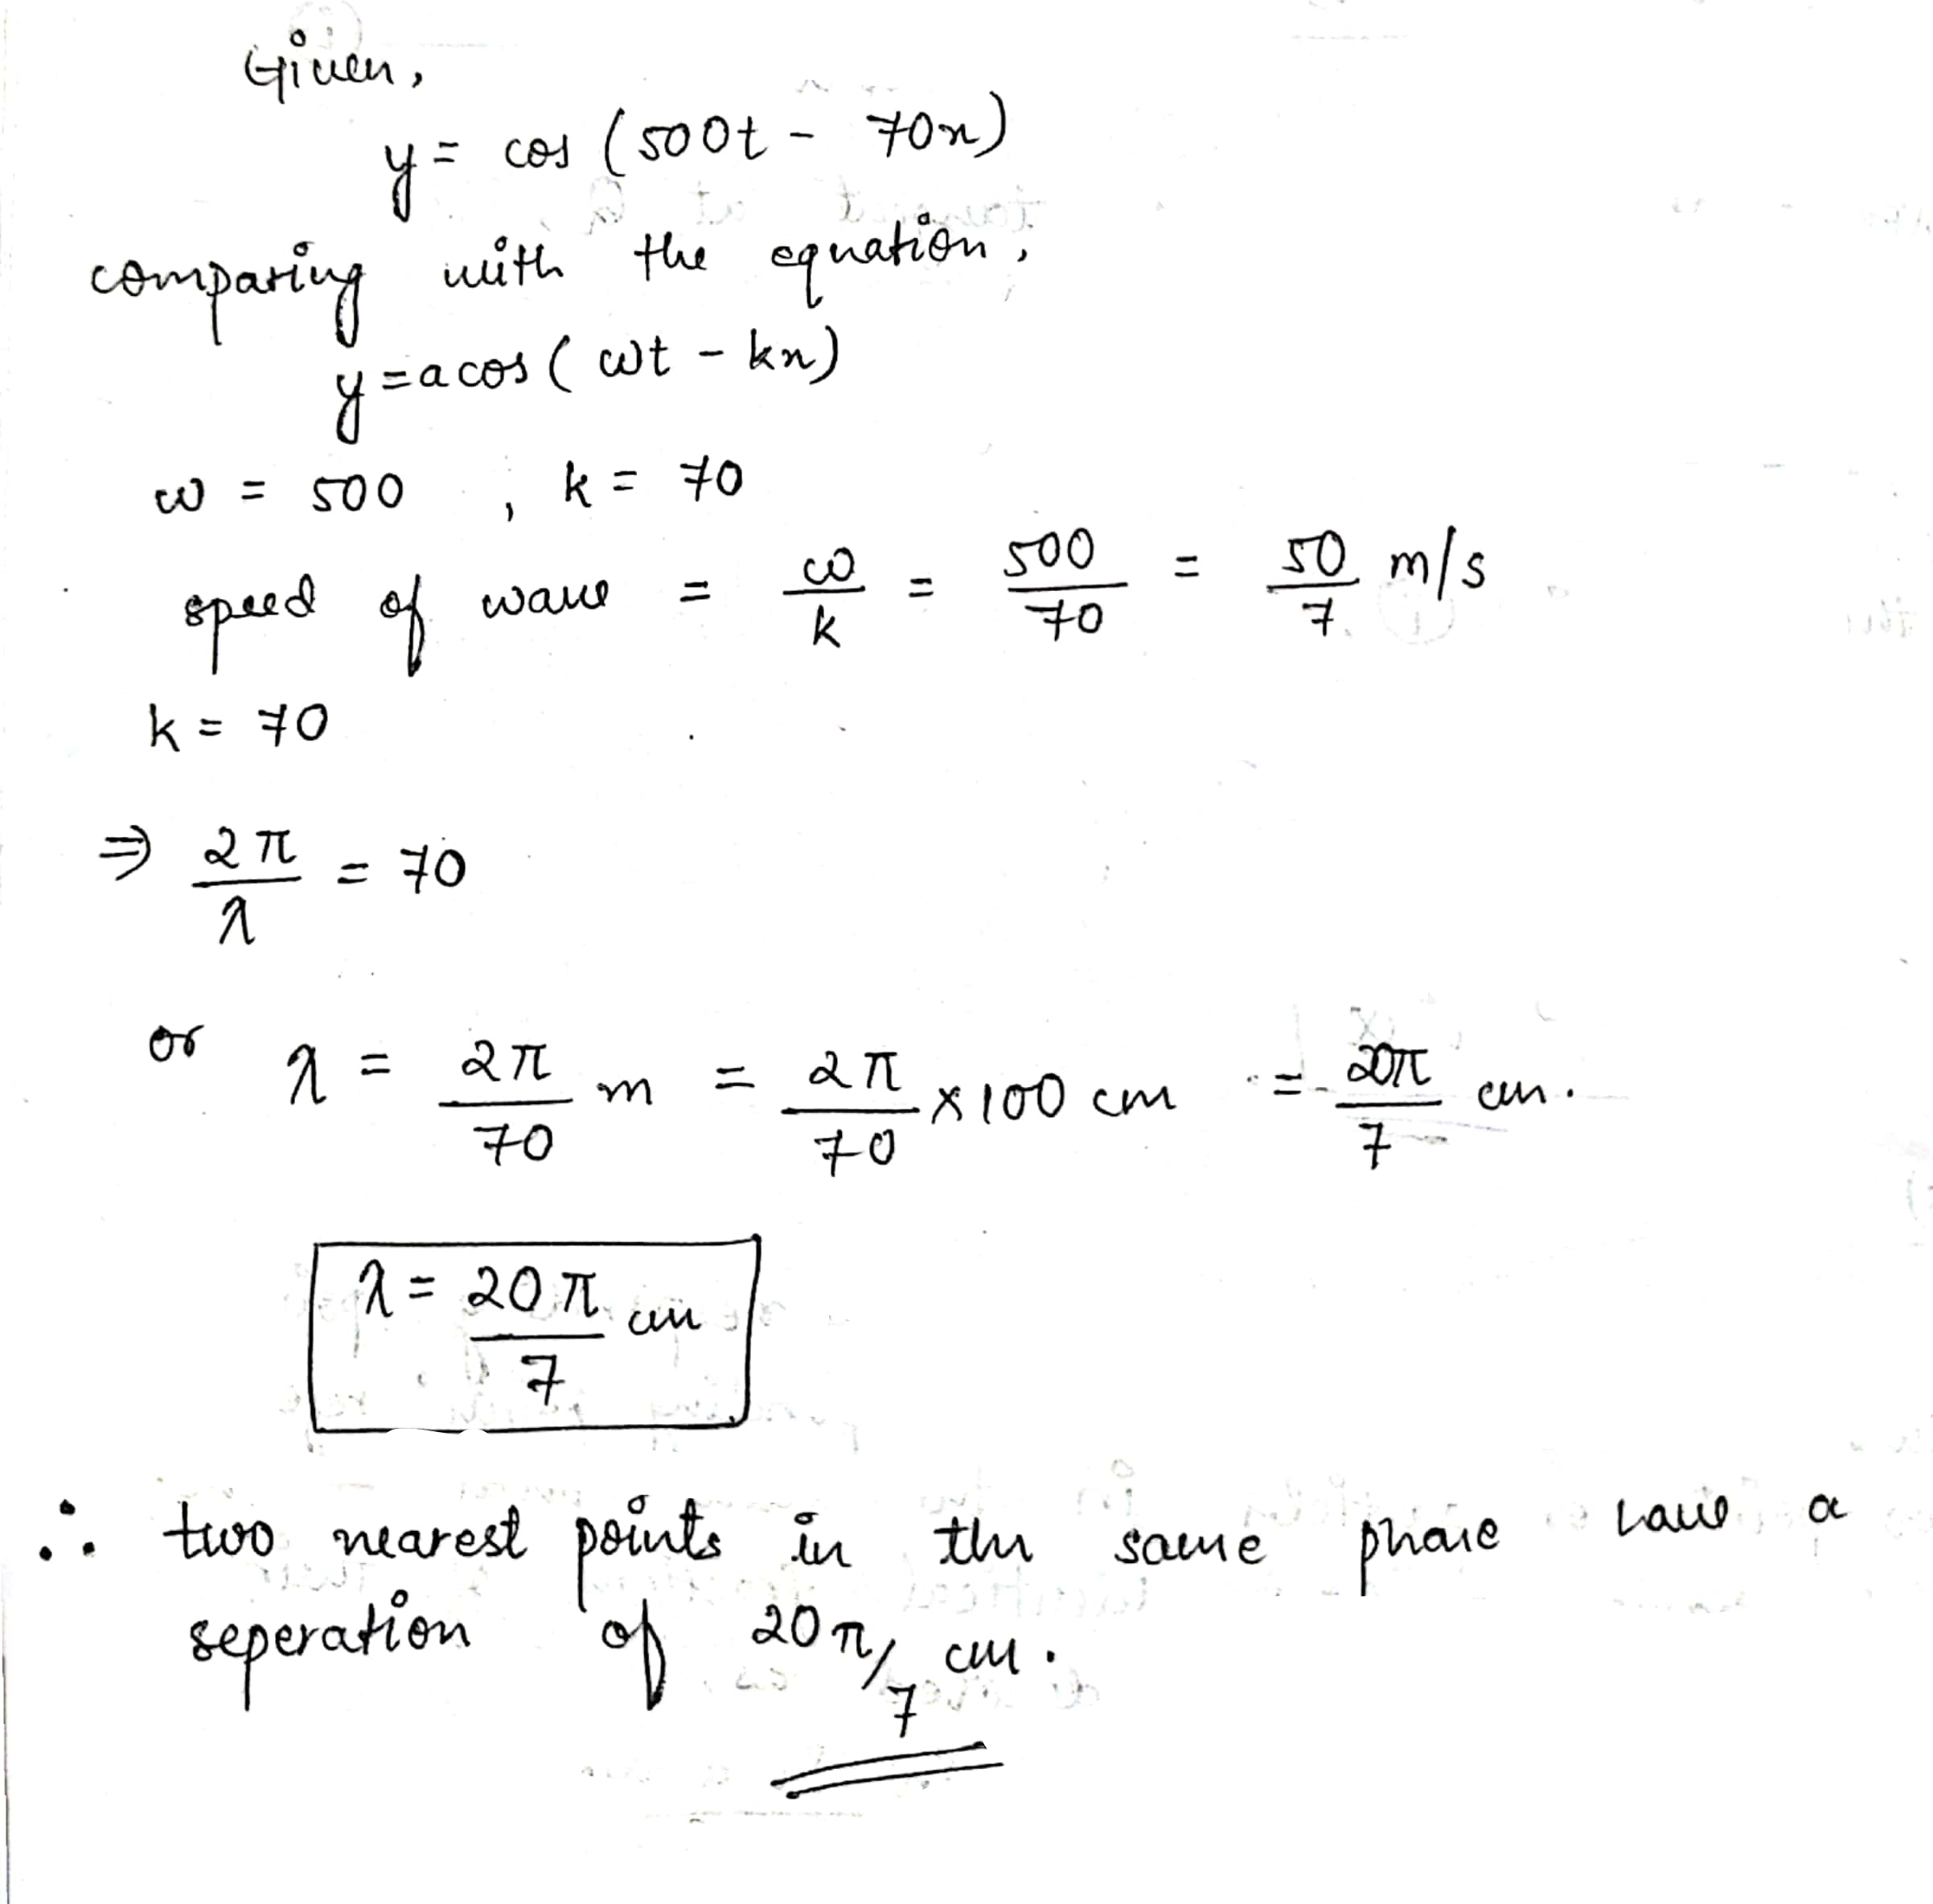 Given,
y = cos (500t - 70x)
comparing with the equation,
y = a cos ( ωt - kx)
ω = 500 , k = 70
speed of wave = ω/k = 500/70 = 50/7 m/s
k = 70
⇒ 2π/λ = 70
or λ = 2π/70 m = 2π/70 × 100 cm = 20π/7 cm.
λ = 20π/7 cm
∴ two nearest points in the same phase have a
seperation of 20π/7 cm.